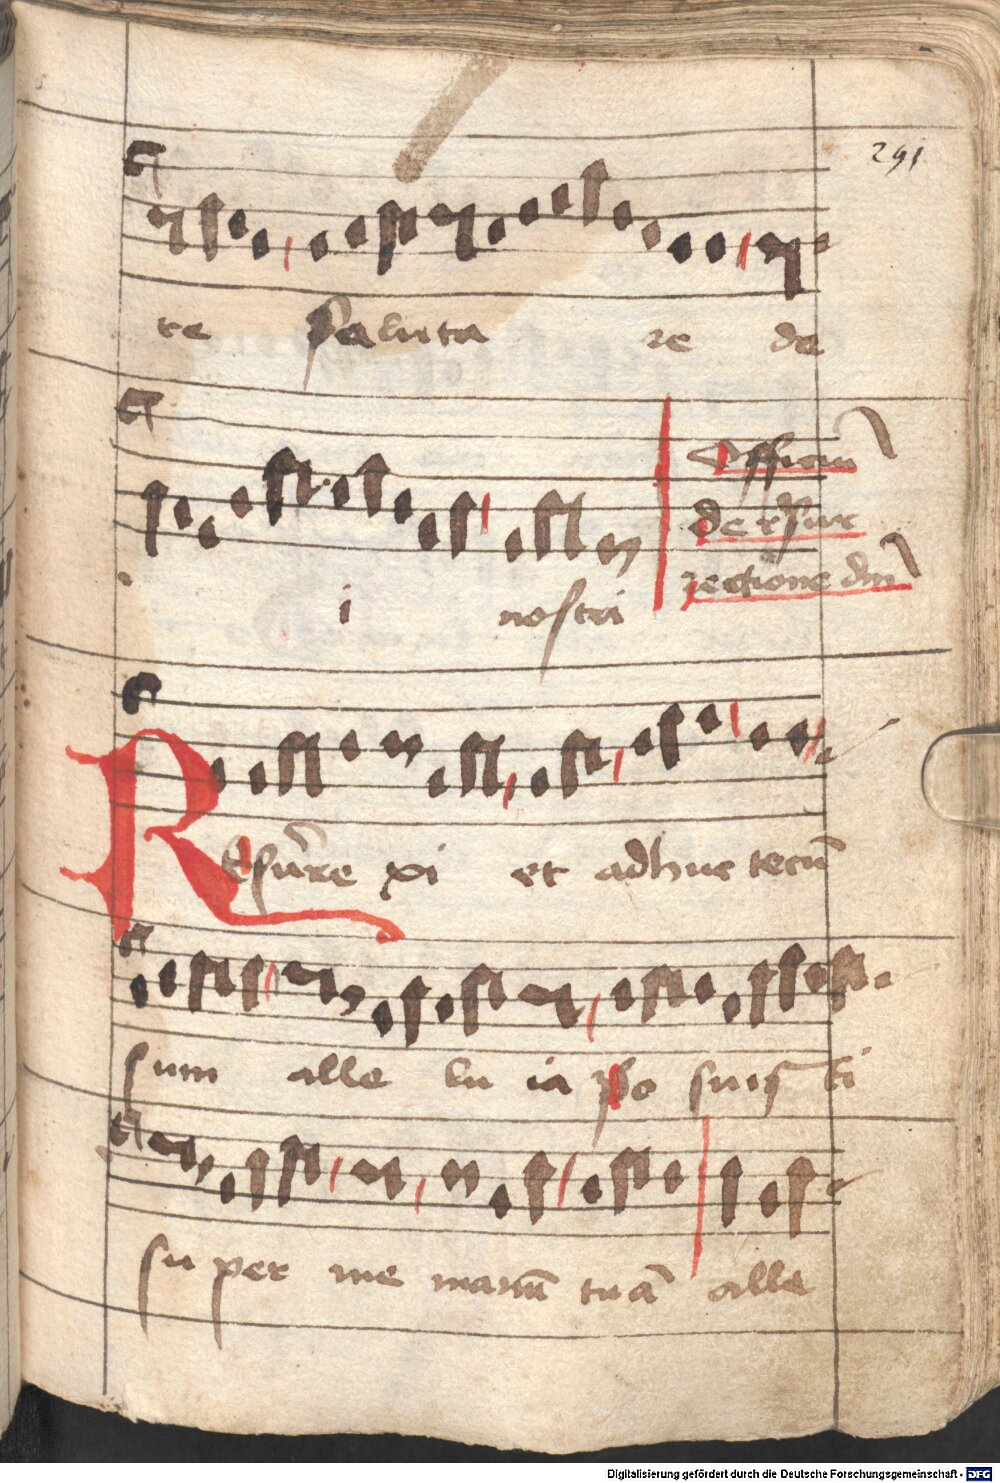 291
re saluta re de
i nostri
Officiu
de resur
rectione dni
Resurre xi et adhuc tecū
sum alle lu ia po suis ti
su per me manū tuā alle
Digitalisierung gefördert durch die Deutsche Forschungsgemeinschaft - DFG